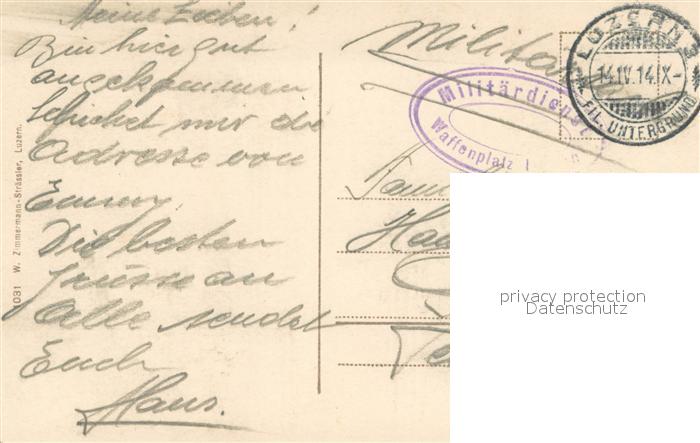 Meine Lieben!
Bin hier gut
angekommen
Schicket mir die
Adresse von
Emmy.
Die besten
Grüsse an
Alle sendet
Euch
Hans.
1031 W. Zimmermann-Strässler, Luzern.
Militär
LUZERN
14.IV.14.IX-
FIL. UNTERGRUND
Militärdienst
Waffenplatz
Fam
privacy protection
Datenschutz